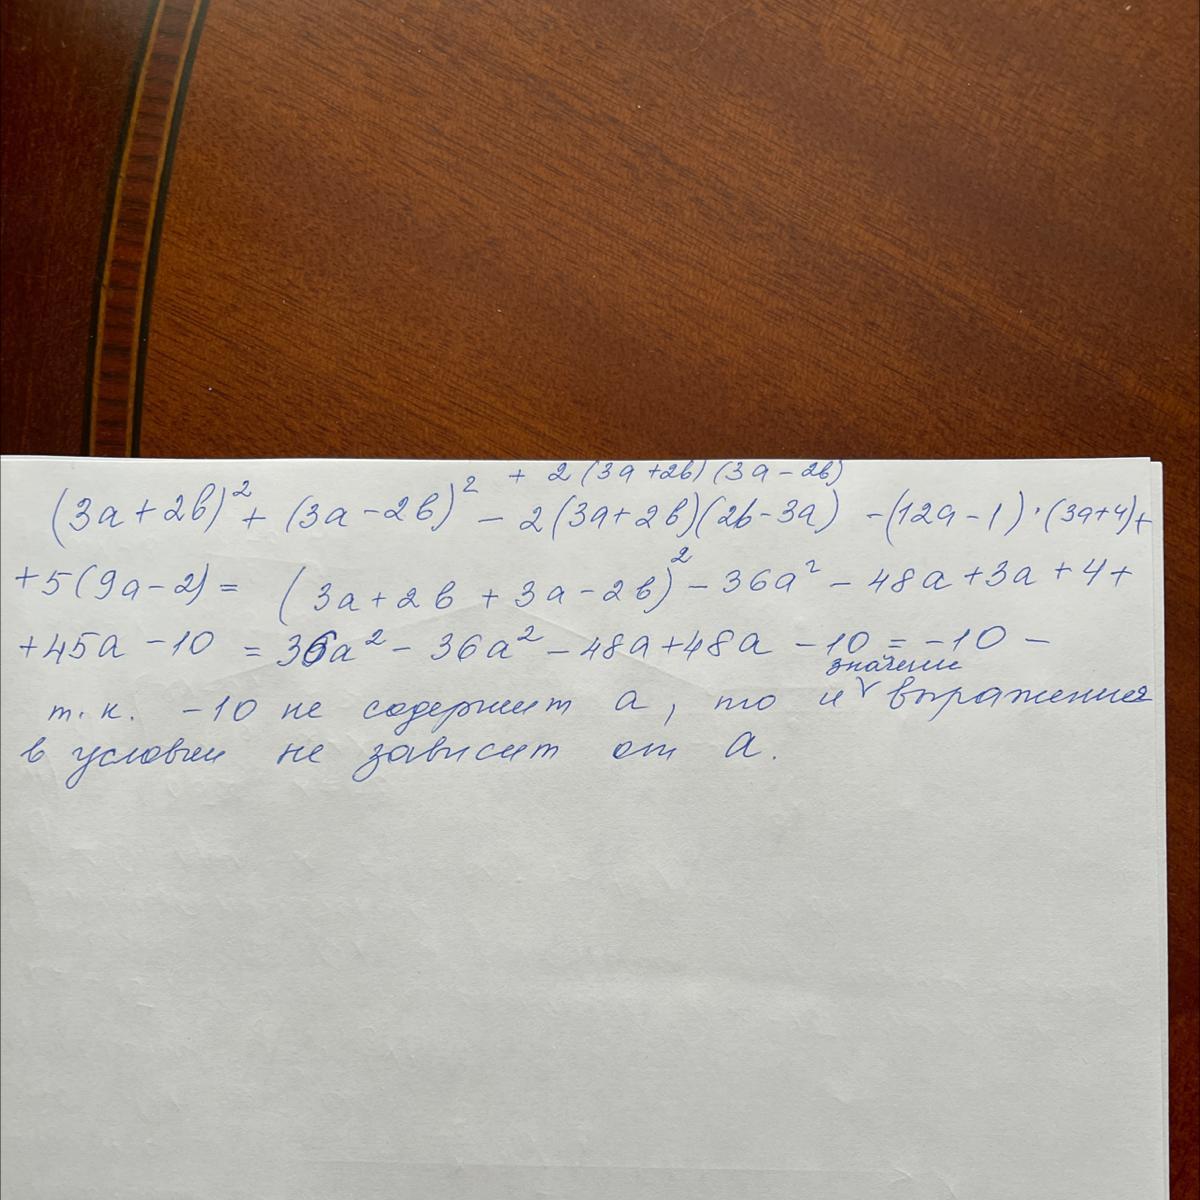 + 2(3a+2b)(3a-2b)
(3a+2b)² + (3a-2b)² - 2(3a+2b)(2b-3a) - (12a-1)·(3a+4)+
+5(9a-2) = (3a+2b+3a-2b)² - 36a² - 48a + 3a + 4 +
+45a - 10 = 36a² - 36a² - 48a + 48a - 10 = -10 -
значение
т.к. -10 не содержит a, то и выражения
в условии не зависит от a.